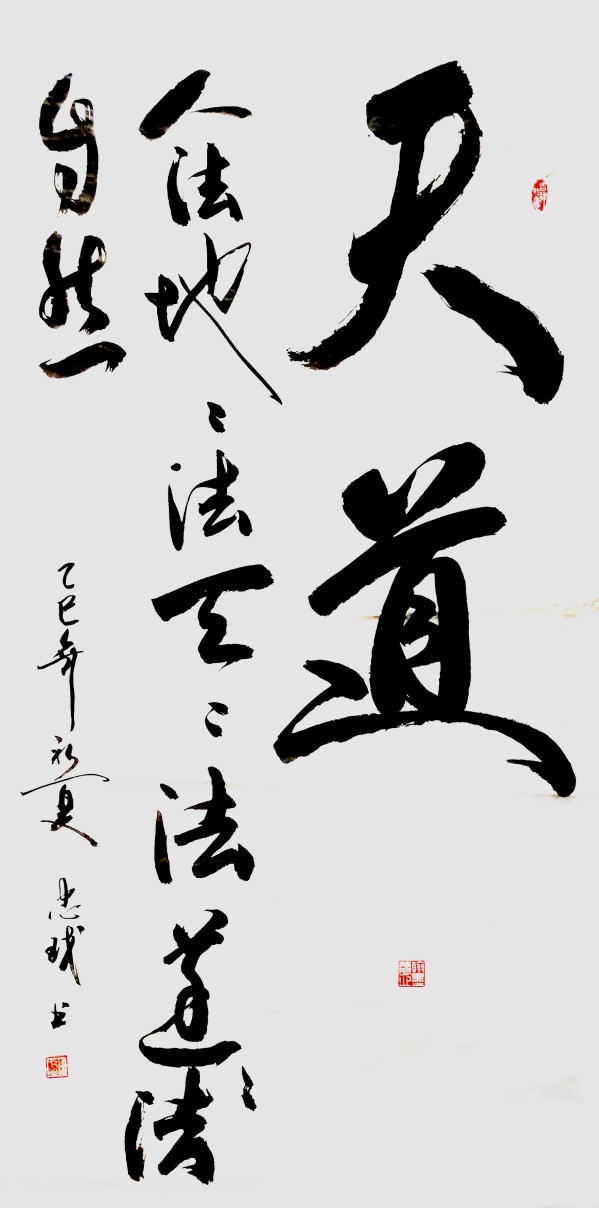 天道
人法地々法天々法道々法
自然
乙巳年初夏 忠 书